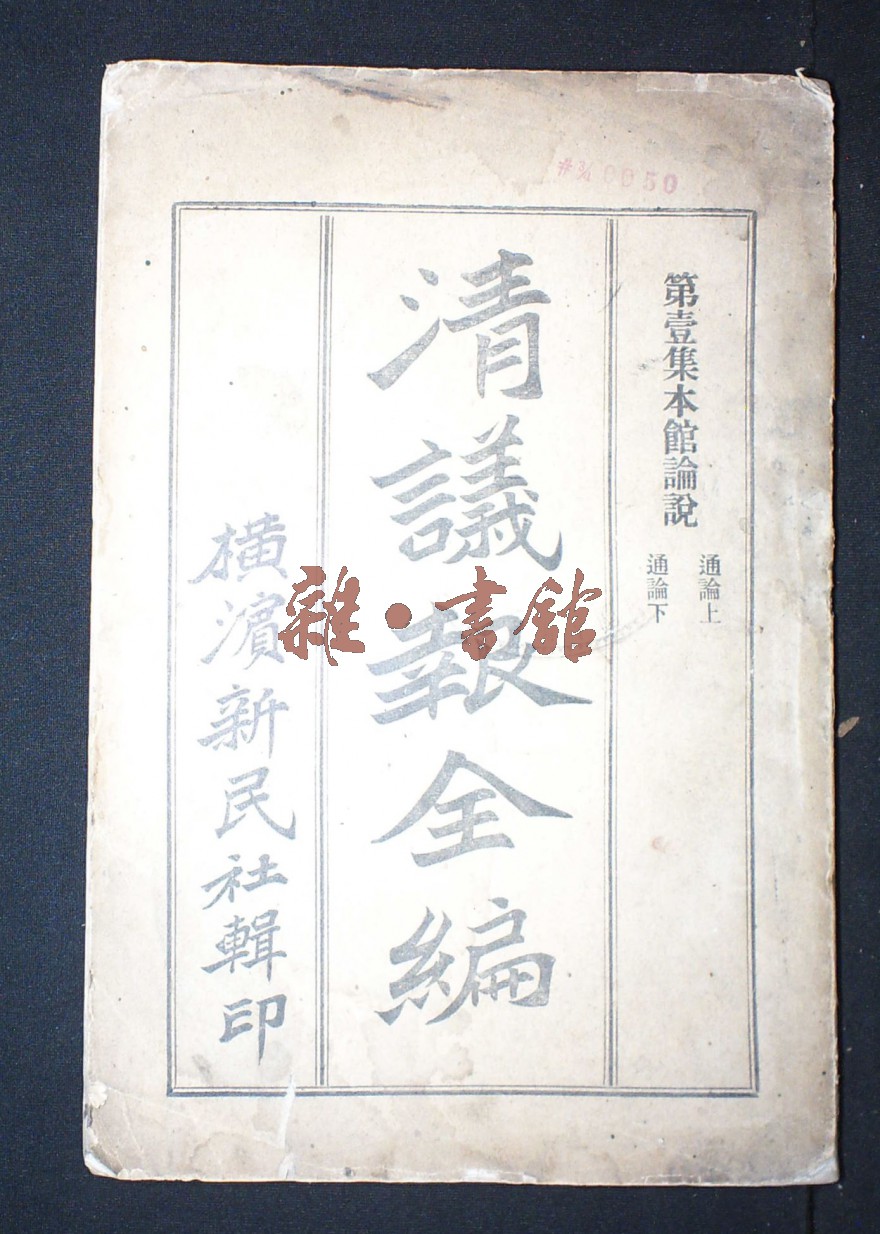 第壹集本館論說
通論上
通論下
清議報全編
橫濱新民社輯印
雜·書館